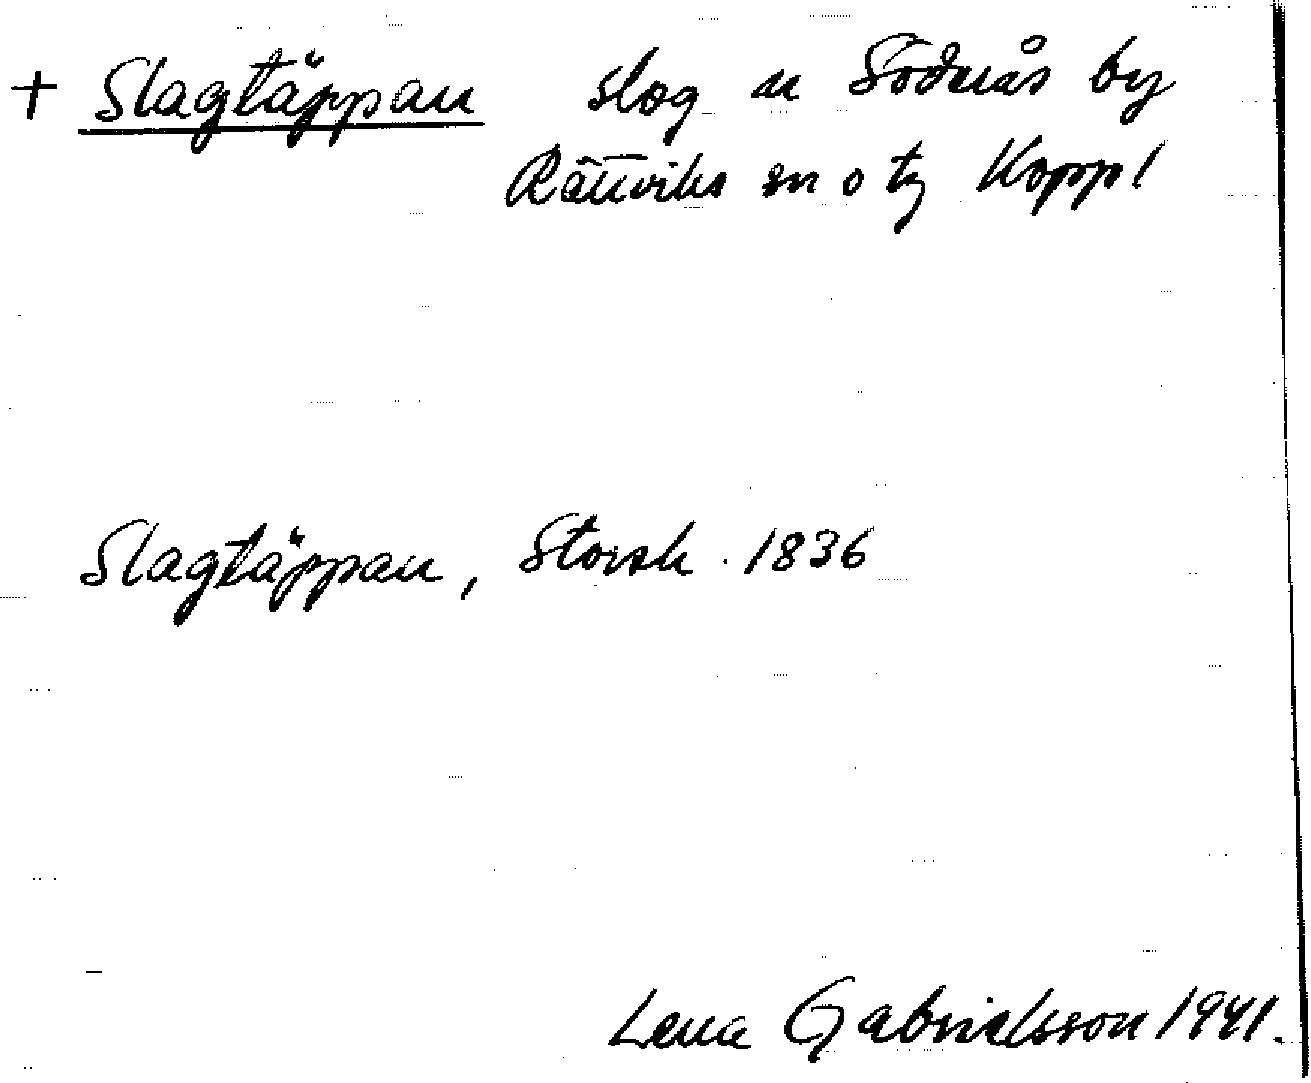 + Slagtäppan slog u Söderås by
Rättviks sn o tg Kopp l
Slagtäppan, Storsk. 1836
Lena Gabrielsson 1941.